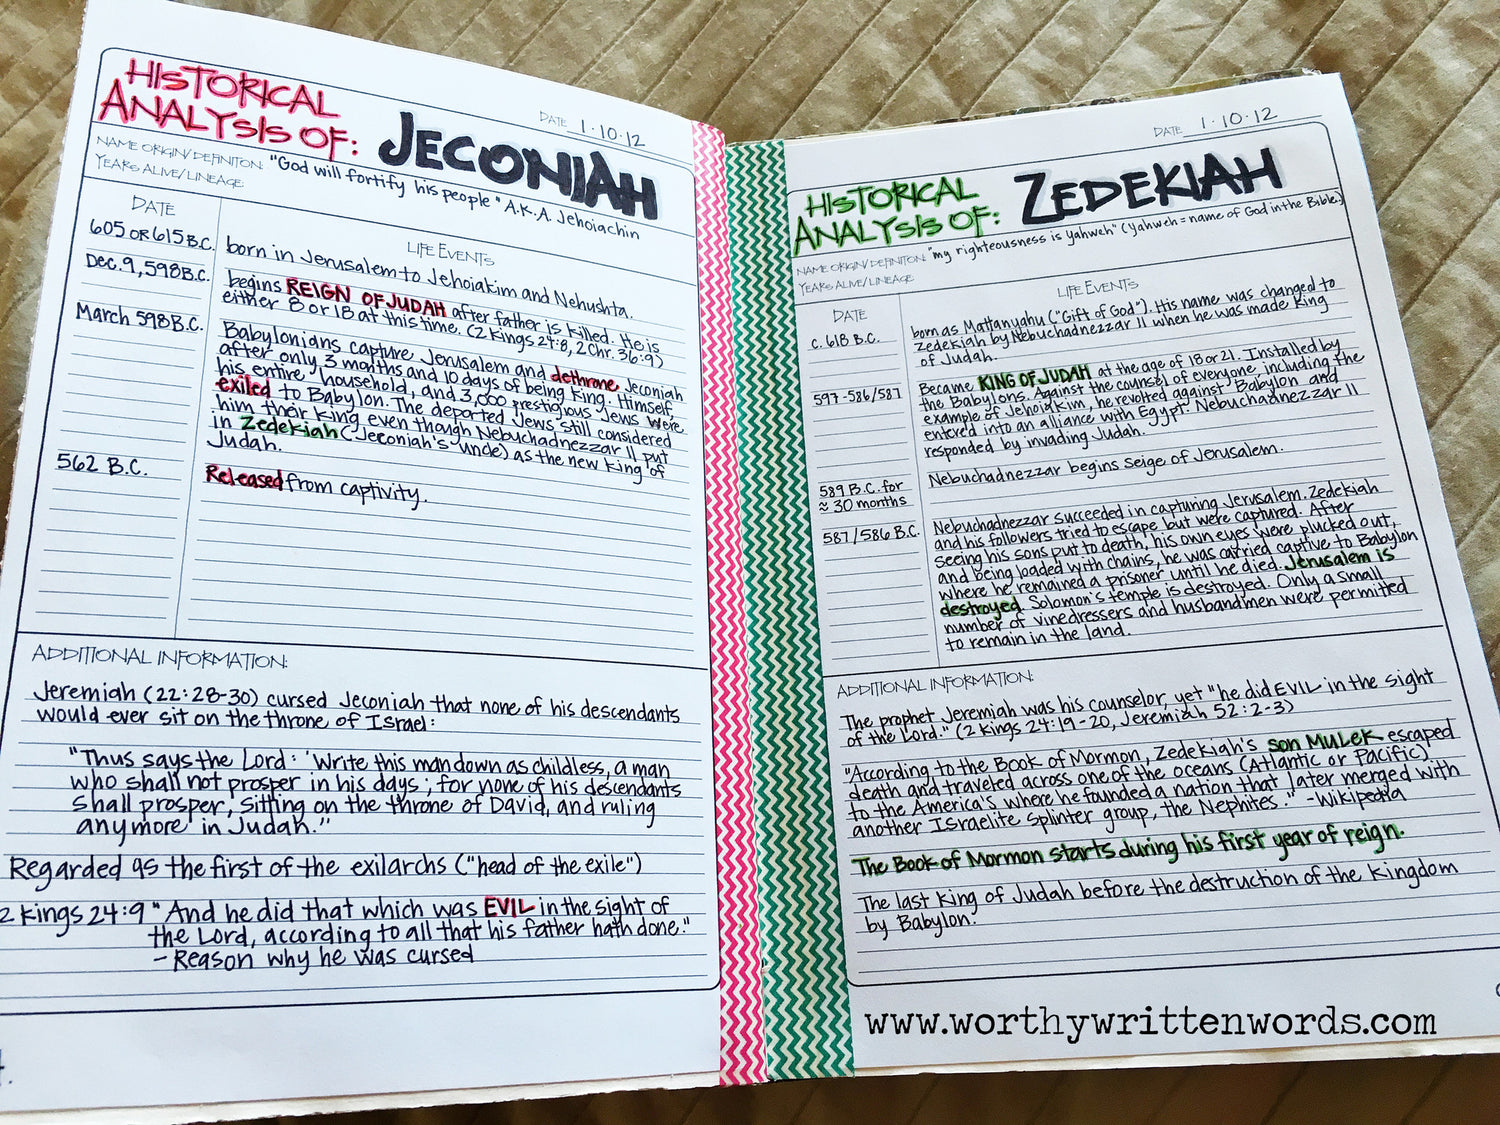 HISTORICAL
ANALYSIS OF: JECONIAH
DATE 1·10·12
NAME ORIGIN/DEFINITON: "God will fortify his people" A.K.A. Jehoiachin
YEARS ALIVE/LINEAGE:
DATE
LIFE EVENTS
605 OR 615 B.C.
born in Jerusalem to Jehoiakim and Nehushta.
Dec. 9, 598 B.C.
begins REIGN OF JUDAH after father is killed. He is
either 8 or 18 at this time. (2 Kings 24:8, 2 Chr. 36:9)
March 598 B.C.
Babylonians capture Jerusalem and dethrone Jeconiah
after only 3 months and 10 days of being King. Himself,
his entire household, and 3,000 prestigious Jews were
exiled to Babylon. The departed Jews still considered
him their king even though Nebuchadnezzar II put
in Zedekiah (Jeconiah's uncle) as the new King of
Judah.
562 B.C.
Released from captivity.
ADDITIONAL INFORMATION:
Jeremiah (22:28-30) cursed Jeconiah that none of his descendants
would ever sit on the throne of Israel:
"Thus says the Lord: 'Write this man down as childless, a man
who shall not prosper in his days; for none of his descendants
shall prosper, sitting on the throne of David, and ruling
anymore in Judah."
Regarded as the first of the exilarchs ("head of the exile")
2 Kings 24:9 "And he did that which was EVIL in the sight of
the Lord, according to all that his father hath done."
- Reason why he was cursed
HISTORICAL
ANALYSIS OF: ZEDEKIAH
DATE 1·10·12
NAME ORIGIN/DEFINITON: "my righteousness is Yahweh" (Yahweh = name of God in the Bible.)
YEARS ALIVE/LINEAGE:
DATE
LIFE EVENTS
c. 618 B.C.
born as Mattanyahu ("Gift of God"). His name was changed to
Zedekiah by Nebuchadnezzar II when he was made King
of Judah.
597-586/587
Became KING OF JUDAH at the age of 18 or 21. Installed by
the Babylons. Against the counsel of everyone, including the
example of Jehoiakim, he revolted against Babylon and
entered into an alliance with Egypt. Nebuchadnezzar II
responded by invading Judah.
589 B.C. for
≈ 30 months
Nebuchadnezzar begins seige of Jerusalem.
587/586 B.C.
Nebuchadnezzar succeeded in capturing Jerusalem. Zedekiah
and his followers tried to escape but were captured. After
seeing his sons put to death, his own eyes were plucked out,
and being loaded with chains, he was carried captive to Babylon
where he remained a prisoner until he died. Jerusalem is
destroyed. Solomon's temple is destroyed. Only a small
number of vinedressers and husbandmen were permitted
to remain in the land.
ADDITIONAL INFORMATION:
The prophet Jeremiah was his counselor, yet "he did EVIL in the sight
of the Lord." (2 Kings 24:19-20, Jeremiah 52:2-3)
"According to the Book of Mormon, Zedekiah's son MULEK escaped
death and traveled across one of the oceans (Atlantic or Pacific)
to the America's where he founded a nation that later merged with
another Israelite splinter group, the Nephites." -Wikipedia
The Book of Mormon starts during his first year of reign.
The last King of Judah before the destruction of the Kingdom
by Babylon.
www.worthywrittenwords.com